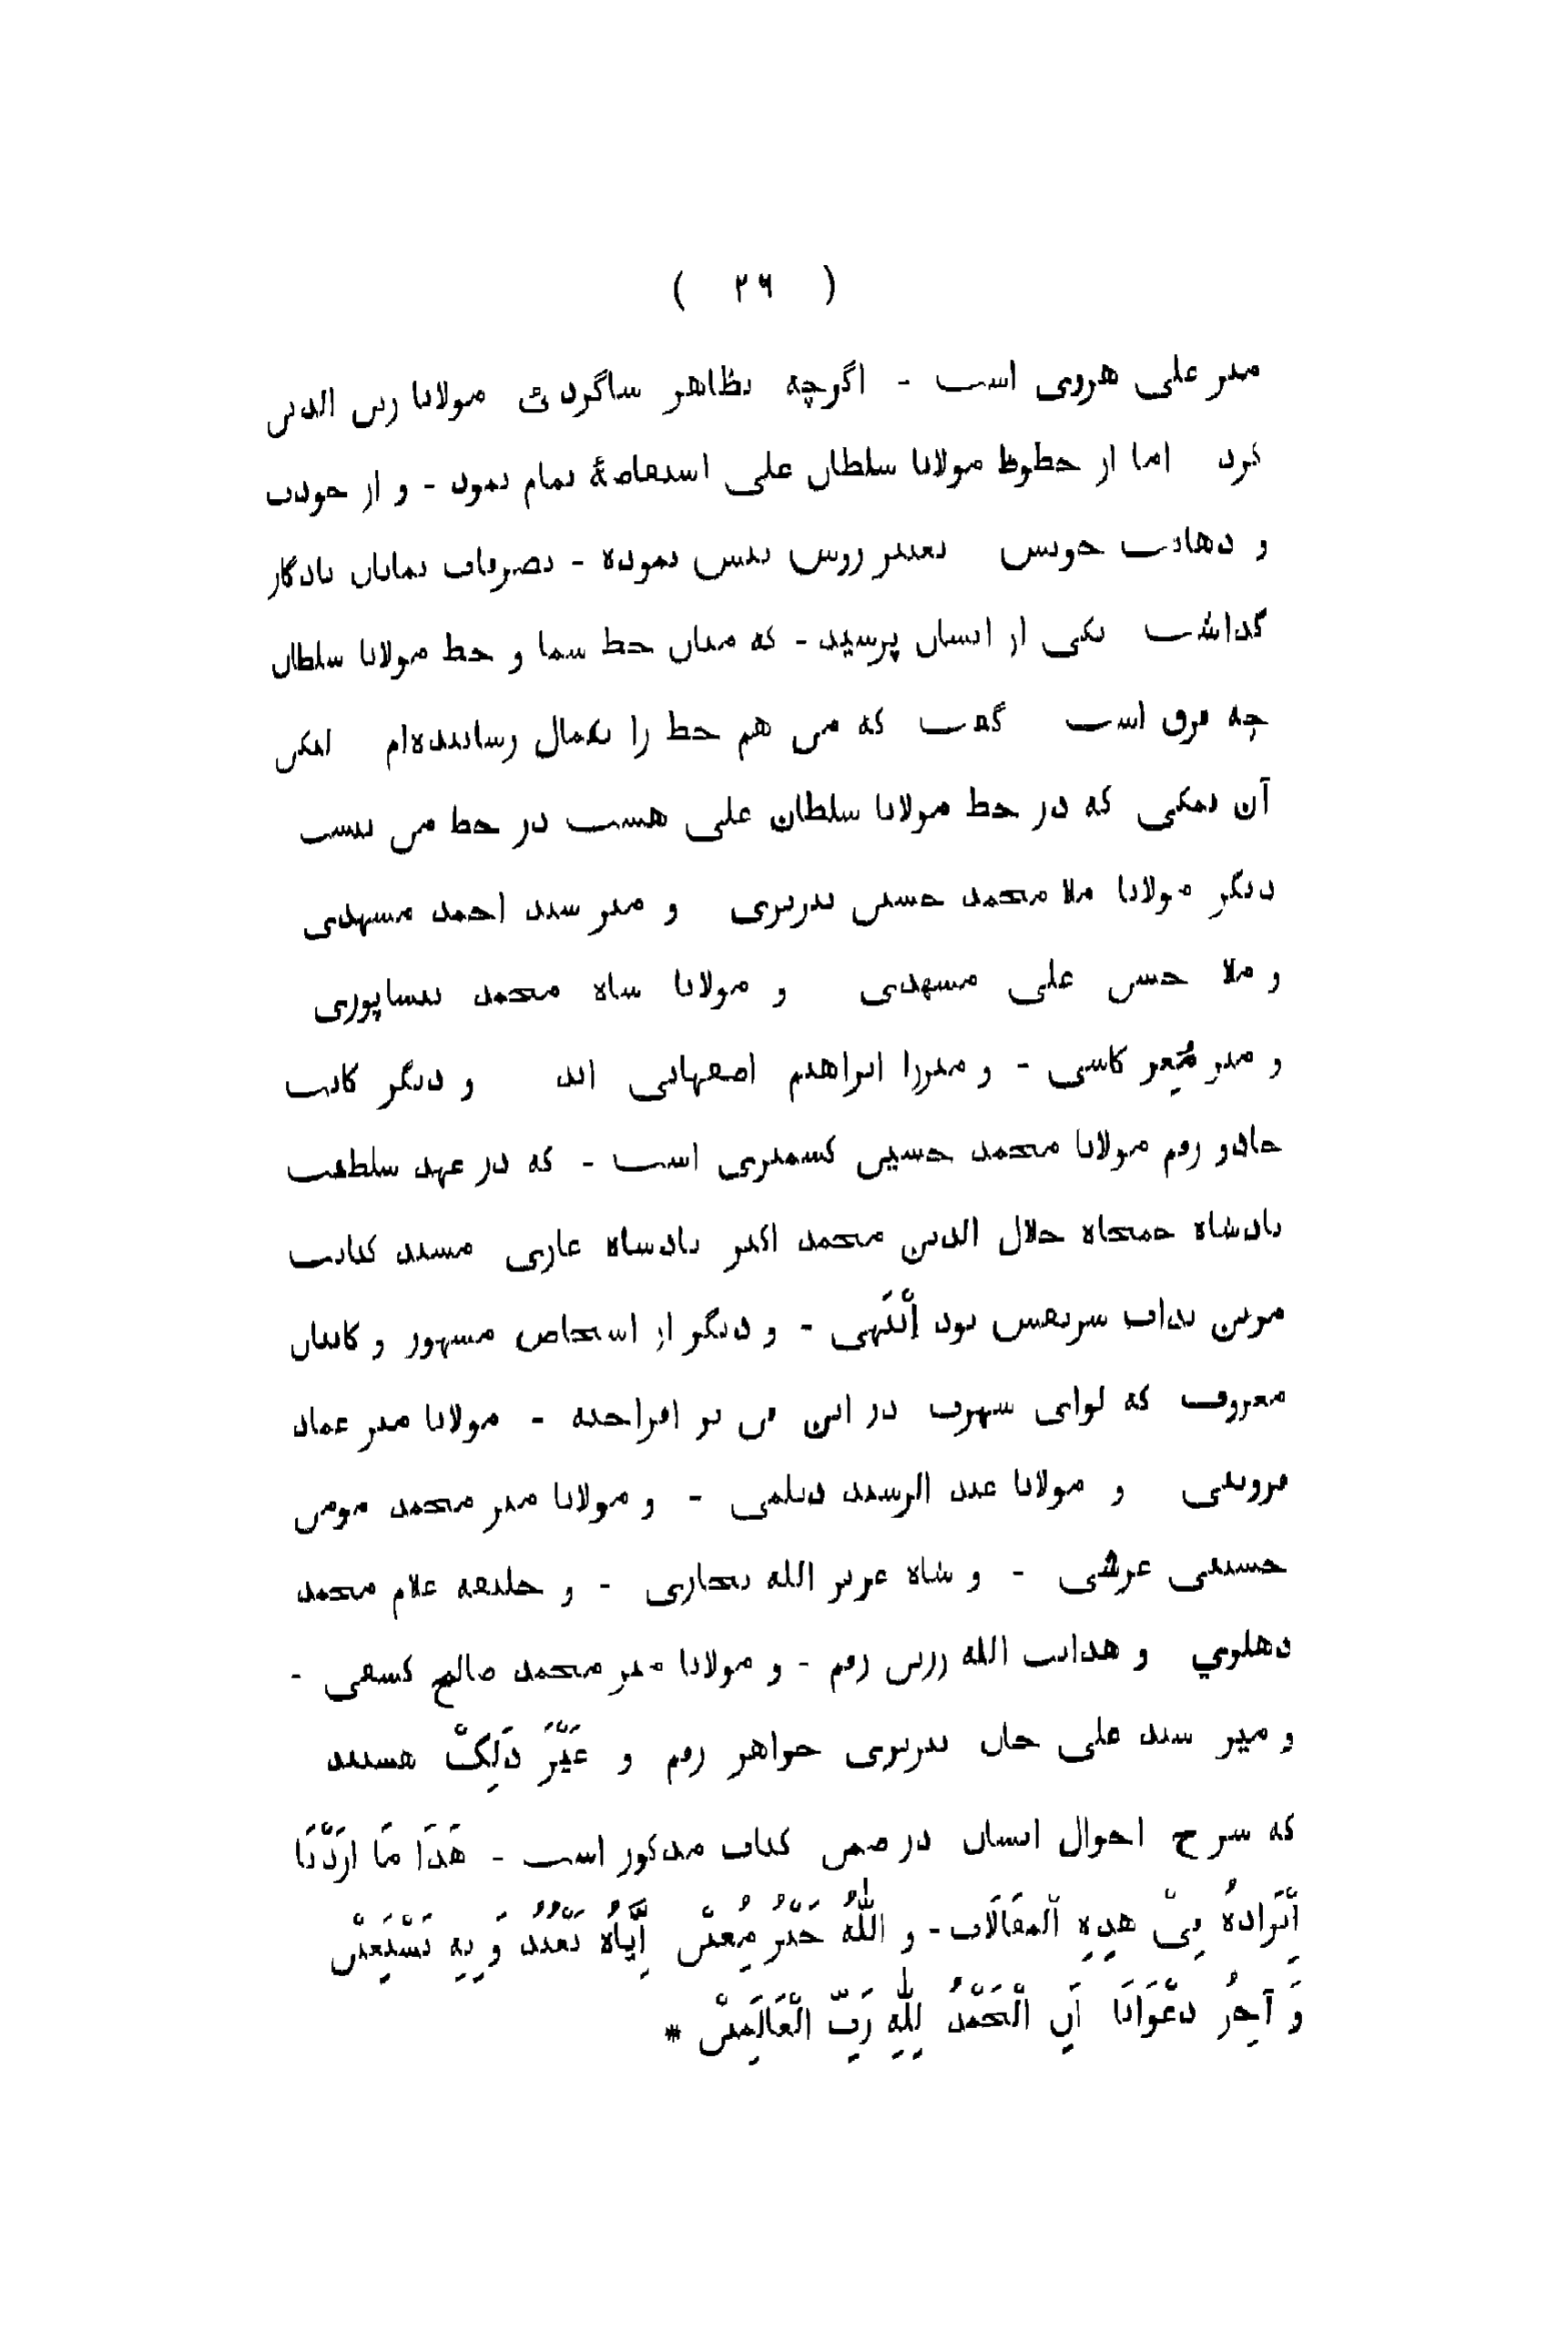 ( ۲۶ )
میر علی هروی است - اگرچه بظاهر شاگردئ مولانا زین الدین
کرد اما از خطوط مولانا سلطان علی استفاضهٔ تمام نمود - و از جودت
و ذهانت خویش تغییر روش پیش نموده - تصرفات نمایان یادگار
گذاشت یکی از ایشان پرسید - که میان خط شما و خط مولانا سلطان
چه فرق است گفت که من هم خط را بکمال رسانیده‌ام لیکن
آن نمکی که در خط مولانا سلطان علی هست در خط من نیست
دیگر مولانا ملا محمد حسین تبریزی و میر سید احمد مشهدی
و ملا حسن علی مشهدی و مولانا شاه محمد نیشاپوری
و میر مُعِز کاشی - و میرزا ابراهیم اصفهانی اند و دیگر کاتب
جادو رقم مولانا محمد حسین کشمیری است - که در عهد سلطنت
بادشاه جمجاه جلال الدین محمد اکبر بادشاه غازی مسند کتابت
مزین بذات شریفش بود اِنْتَهی - و دیگر از اشخاص مشهور و کاتبان
معروف که لوای شهرت در این فن بر افراخته - مولانا میر عماد
قزوینی و مولانا عبد الرشید دیلمی - و مولانا میر محمد مومن
حسینی عرشی - و شاه عزیز الله بخاری - و خلیفه غلام محمد
دهلوي و هدایت الله زرین رقم - و مولانا میر محمد صالح کشفی -
و میر سید علی خان تبریزی جواهر رقم و غَیْرَ ذَلِکْ هستند
که شرح احوال ایشان در ضمن کتاب مذکور است - هَذَا مَا ارَدْنَا
اِیْرَادهُ فِیْ هذِهِ اَلمقَالَات - و اللّٰهُ خَیْرُ مُعِیْن اِیَّاهُ نَعْبُدُ وَ بِهِ نَسْتَعِیْن
وَ آخِرُ دعْوَانَا اَنِ الْحَمْدُ لِلّٰهِ رَبِّ الْعَالَمِیْن *